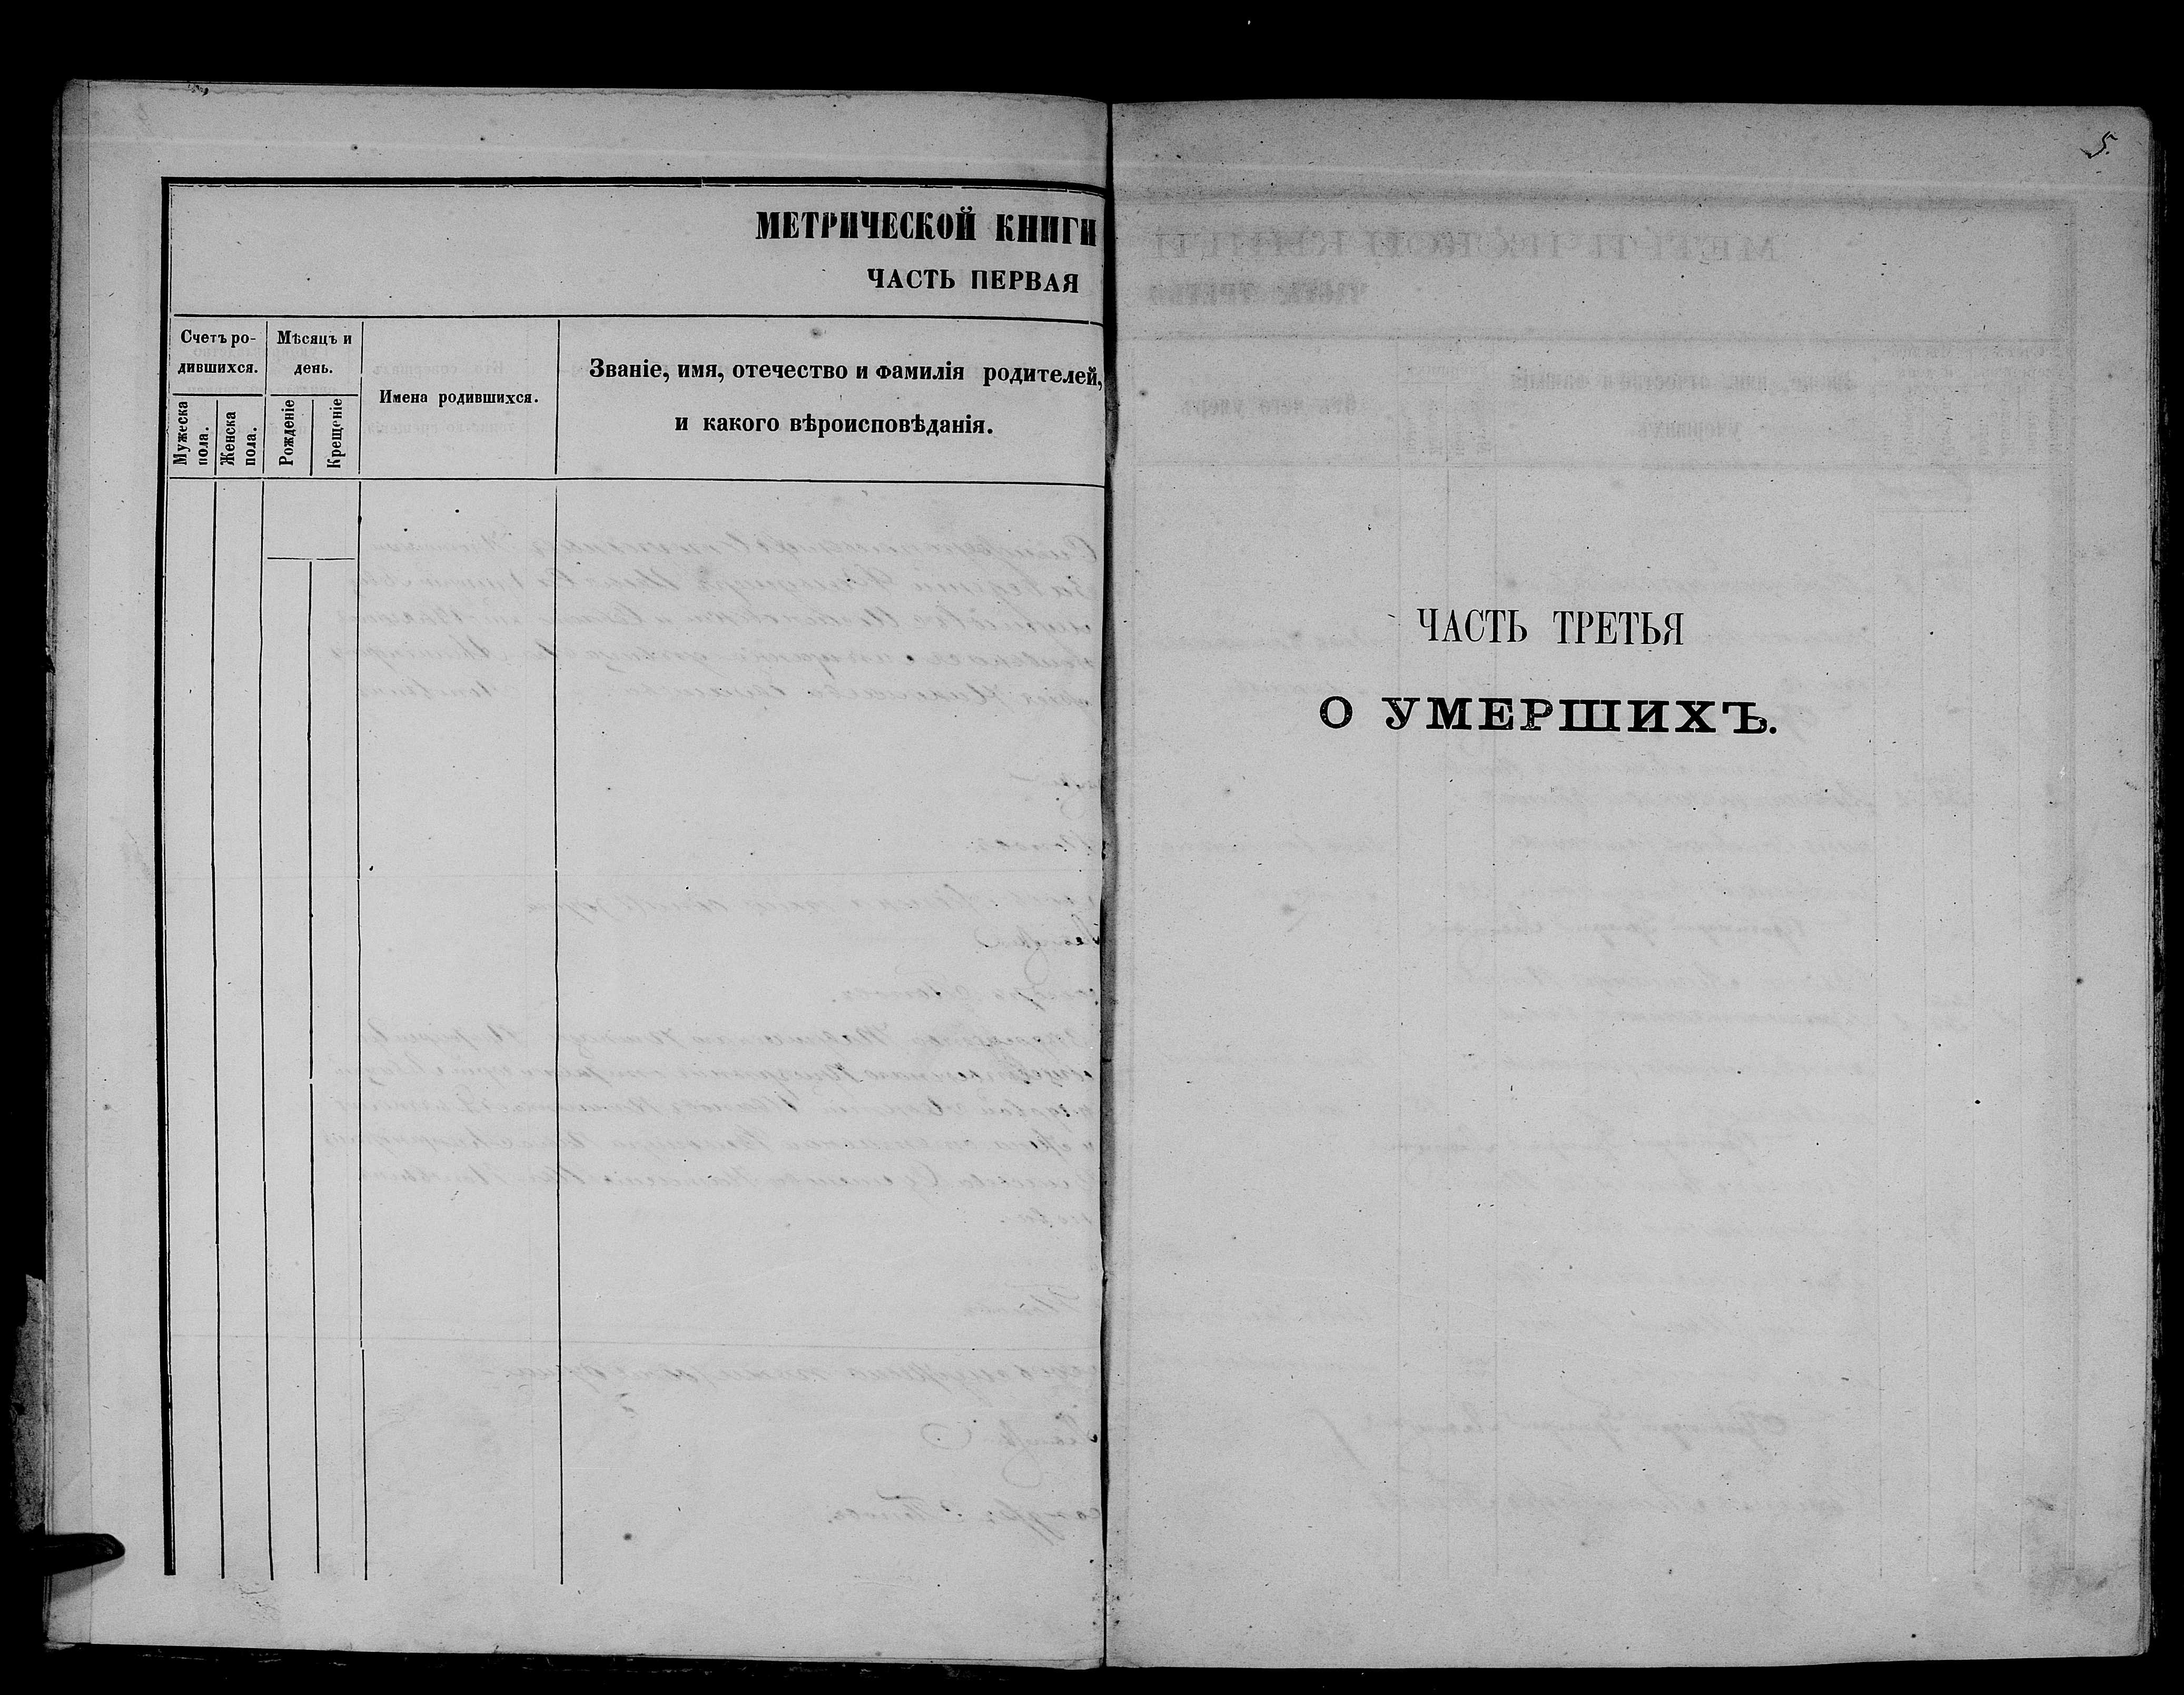 МЕТРИЧЕСКОЙ КНИГИ
ЧАСТЬ ПЕРВАЯ
Счетъ ро-
дившихся.
Мужеска
пола.
Женска
пола.
Мѣсяцъ и
день.
Рожденіе
Крещеніе
Имена родившихся.
Званіе, имя, отечество и фамилія родителей,
и какого вѣроисповѣданія.
5.
ЧАСТЬ ТРЕТЬЯ
О УМЕРШИХЪ.